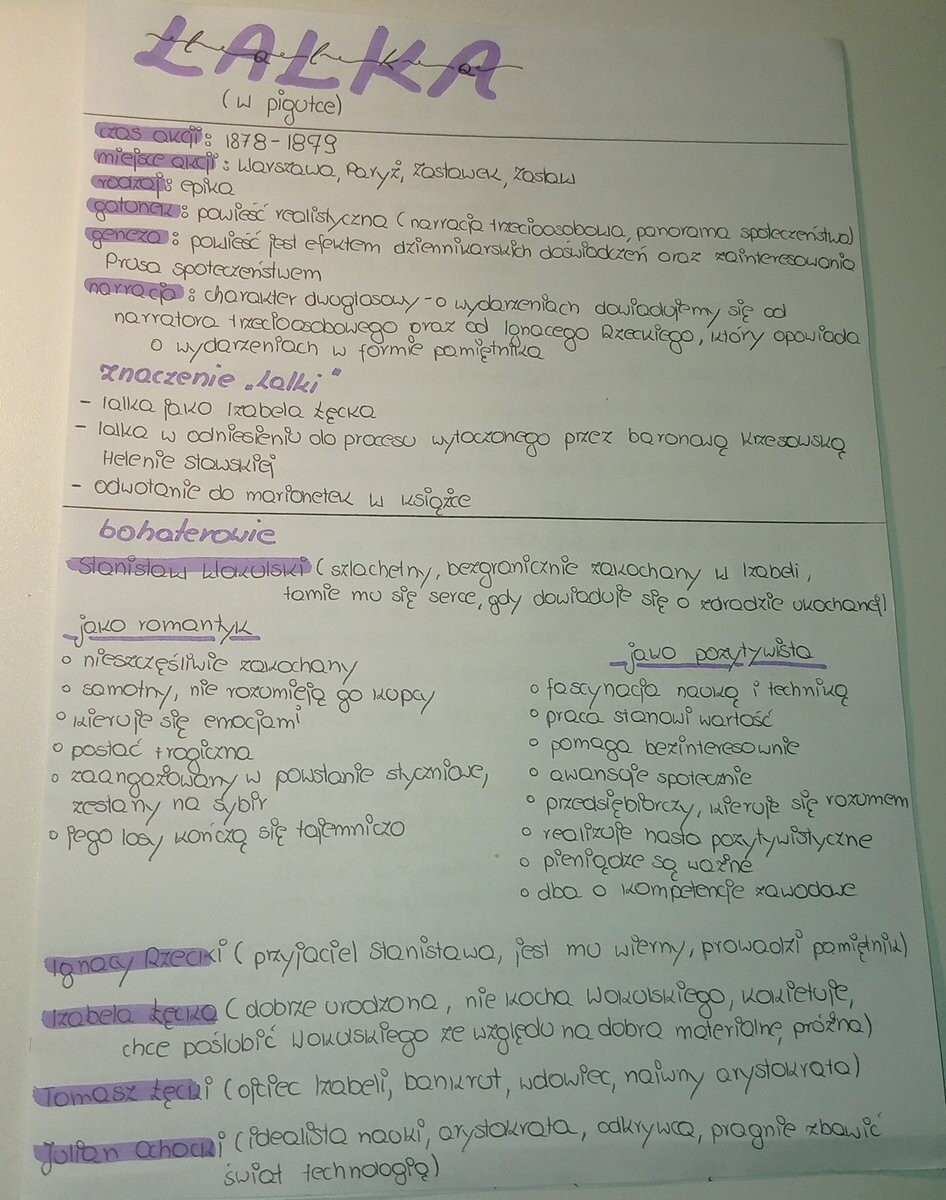 LALKA
lalka
(w pigułce)
czas akcji: 1878-1879
miejsce akcji: Warszawa, Paryż, Zasławek, Zasław
rodzaj: epika
gatunek: powieść realistyczna (narracja trzecioosobowa, panorama społeczeństwa)
geneza: powieść jest efektem dziennikarskich doświadczeń oraz zainteresowania
Prusa społeczeństwem
narracja: charakter dwugłosowy - o wydarzeniach dowiadujemy się od
narratora trzecioosobowego oraz od Ignacego Rzeckiego, który opowiada
o wydarzeniach w formie pamiętnika
znaczenie „Lalki"
- lalka jako Izabela Łęcka
- lalka w odniesieniu do procesu wytoczonego przez baronową Krzesowską
Helenie Stawskiej
- odwołanie do marionetek w książce
bohaterowie
Stanisław Wokulski (szlachetny, bezgranicznie zakochany w Izabeli,
łamie mu się serce, gdy dowiaduje się o zdradzie ukochanej)
jako romantyk
○ nieszczęśliwie zakochany
○ samotny, nie rozumieją go kupcy
○ kieruje się emocjami
○ postać tragiczna
○ zaangażowany w powstanie styczniowe,
zesłany na sybir
○ jego losy kończą się tajemniczo
jako pozytywista
○ fascynacja nauką i techniką
○ praca stanowi wartość
○ pomaga bezinteresownie
○ awansuje społecznie
○ przedsiębiorczy, kieruje się rozumem
○ realizuje hasła pozytywistyczne
○ pieniądze są ważne
○ dba o kompetencje zawodowe
Ignacy Rzecki (przyjaciel Stanisława, jest mu wierny, prowadzi pamiętnik)
Izabela Łęcka (dobrze urodzona, nie kocha Wokulskiego, kokietuje,
chce poślubić Wokulskiego ze względu na dobra materialne, próżna)
Tomasz Łęcki (ojciec Izabeli, bankrut, wdowiec, naiwny arystokrata)
Julian Ochocki (idealista nauki, arystokrata, odkrywca, pragnie zbawić
świat technologią)